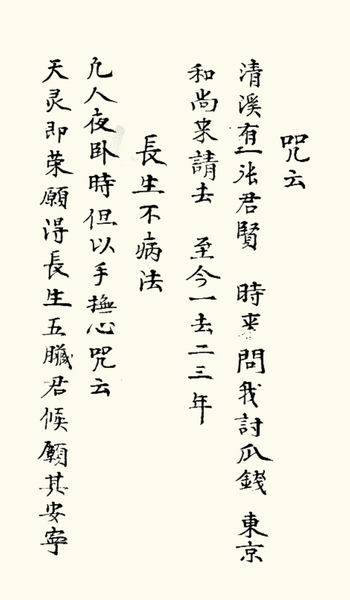 咒云
清溪有一张君賢　時来問我討瓜錢　東京
和尚来請去　至今一去二三年
長生不病法
凡人夜卧時但以手撫心咒云
天灵即荣願得長生五臓君候願其安寧